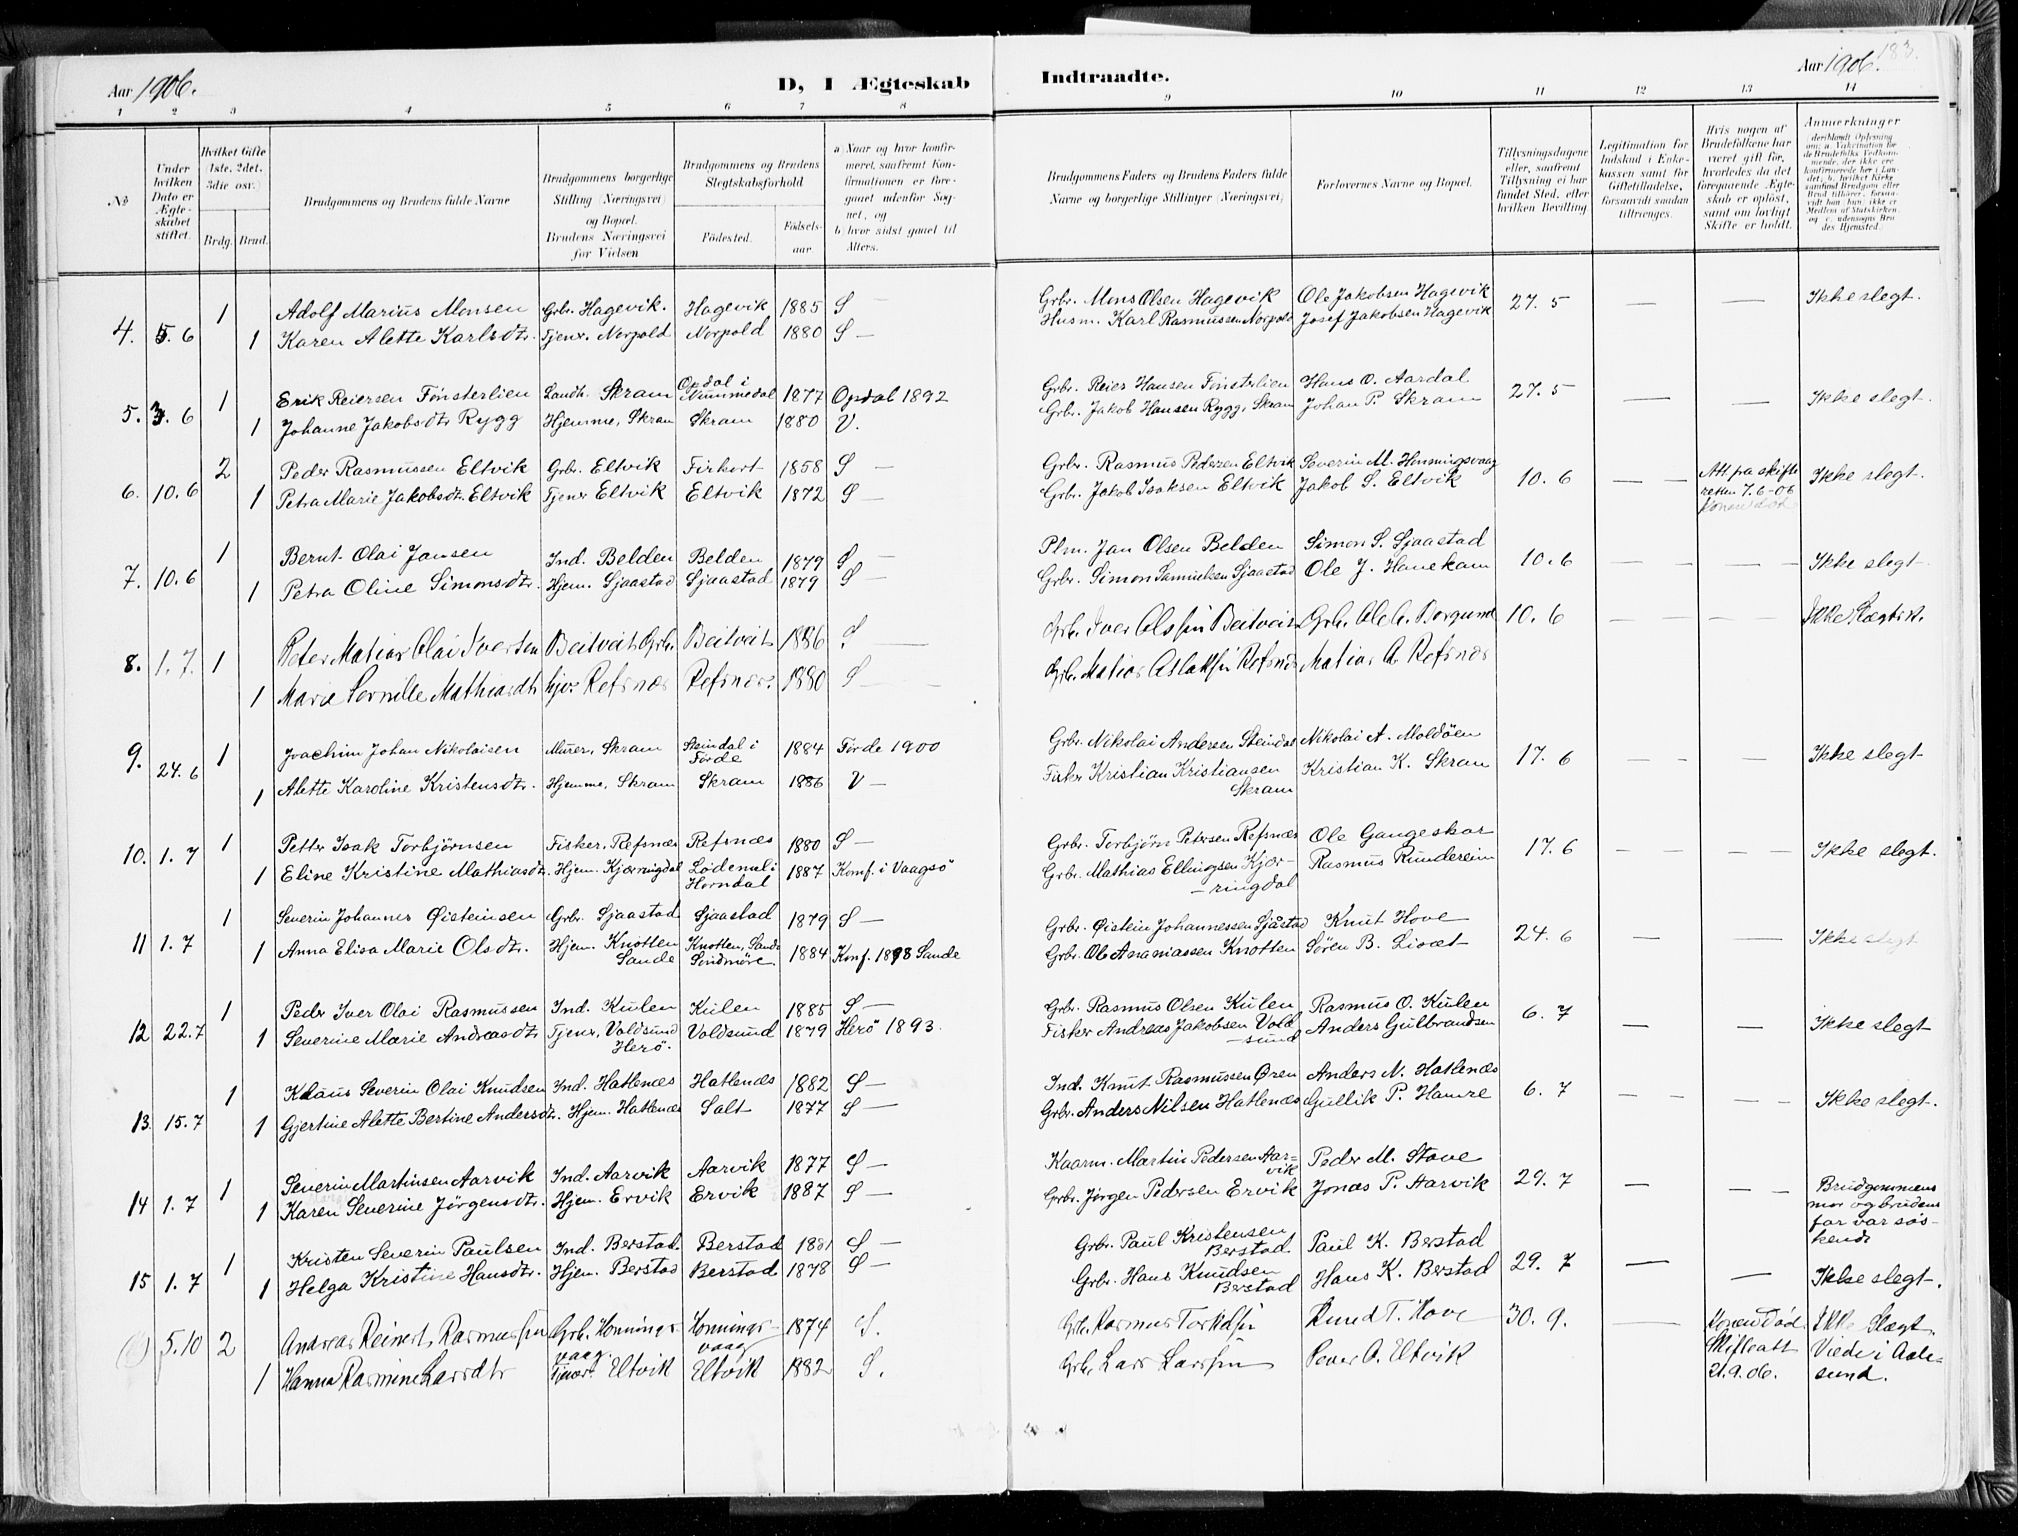 183.
Aar 1906.
D, I Ægteskab
Indtraadte.
Aar 1906.
1 2 3 4 5 6 7 8 9 10 11 12 13 14
No
Under hvilken Dato er Ægteskabet stiftet.
Hvilket Gifte (1ste, 2det, 3die osv.)
Brdg. Brud.
Brudgommens og Brudens fulde Navne
Brudgommens borgerlige Stilling (Næringsvei) og Bopæl. Brudens Næringsvei før Vielsen
Brudgommens og Brudens Slegtskabsforhold
Fødested.
Fødselsaar.
a) Naar og hvor konfirmeret, saafremt Konfirmationen er foregaaet udenfor Sognet, og
b) hvor sidst gaaet til Alters.
Brudgommens Faders og Brudens Faders fulde Navne og borgerlige Stillinger (Næringsvei)
Forlovernes Navne og Bopæl.
Tillysningsdagene eller, saafremt Tillysning ei har fundet Sted, efter hvilken Bevilling.
Legitimation for Indskud i Enkekassen samt for Giftetilladelse, forsaavidt saadan tiltrænges.
Hvis nogen af Brudefolkene har været gift før, hvorledes da det foregaaende Ægteskab er opløst, samt om lovligt Skifte er holdt.
Anmærkninger
4. 5. 6 1 Adolf Marius Monsen Grbr. Hagevik. Hagevik 1885 S — Grbr. Mons Olsen Hagevik Ole Jakobsen Hagevik 27. 5 — — Ikke slegt.
1 Karen Alette Karlsdtr. Tjener. Norpold Norpold 1880 S — Husm. Karl Rasmussen Norpold Josef Jakobsen Hagevik
5. 3. 6 1 Erik Reiersen Fønsterlien Landh. Skram Opdal i Nummedal 1877 Opdal 1892 Grbr. Reier Hansen Fønsterlien Hans O. Aardal 27. 5 — — Ikke slegt.
1 Johanne Jakobsdtr Rygg Hjemme, Skram Skram 1880 V. Grbr. Jakob Hansen Rygg, Skram Johan P. Skram
6. 10. 6 2 Peder Rasmussen Eltvik Grbr. Eltvik Firhort 1858 S — Grbr. Rasmus Pedersen Eltvik Severin M. Honningsvaag 10. 6 — — Att. fra skifteretten 7.6-06 Ikke slegt.
1 Petra Marie Jakobsdtr. Eltvik Tjener Eltvik Eltvik 1872 S — Grbr. Jakob Isaksen Eltvik Jakob S. Eltvik
7. 10. 6 1 Bernt Olai Jansen Ind. Belden Belden 1879 S — Plm. Jan Olsen Belden Simon S. Sjaastad 10. 6 — — Ikke slegt
1 Petra Oline Simonsdtr. Hjem. Sjaastad Sjaastad 1879 S Grbr. Simon Samuelsen Sjaastad Ole J. Hanekam
8. 1. 7. 1 Peter Matias Olai Iversen Beitveit Grbr. Beitveit 1886 S — Grbr. Iver Olsen Beitveit Grb. Ole C. Borgund 10. 6 — — Ikke Slægtsk.
1 Marie Pernille Mathiasdtr hjv. Refsnæs Refsnæs. 1880 S — Grb. Matias Aslaksen Refsnes Matias A. Refsnæs
9. 24. 6 1 Joachim Johan Nikolaisen Murer, Skram Steindal i Førde 1884 Førde 1900 Grbr. Nikolai Andersen Steindal Nikolai A. Moldøen 17. 6 — — Ikke slegt
1 Alette Karoline Kristensdtr. Hjemme, Skram Skram 1886 V — Fisker Kristian Kristiansen Skram Kristian K. Skram
10. 1. 7 1 Petter Isak Torbjørnsen Fisker, Refsnæs Refsnæs 1880 S — Grbr. Torbjørn Petersen Refsnæs Ole Gangeskar 17. 6 — — Ikke slegt.
1 Eline Kristine Mathiasdtr. Hjem. Kjærringdal Lødemel i Horndal 1887 Konf. i Vaagsö Grbr. Mathias Ellingsen Kjærringdal Rasmus Runderein
11 1. 7 1 Severin Johannes Øisteinsen Grbr. Sjaastad Sjaastad 1879 S — Grbr. Øistein Johannessen Sjåstad Knut Hove 24. 6 — — Ikke slegt
1 Anna Elisa Marie Olsdtr. Hjem. Knotten Sande Knotten, Sande Søndmøre 1884 Konf. 1898 Sande Grbr. Ole Ananiassen Knotten Søren B. Liset
12 22. 7 1 Peder Iver Olai Rasmussen Ind. Kulen Kulen 1885 S — Grbr. Rasmus Olsen Kulen Rasmus O. Kulen 6. 7 — — Ikke slegt
1 Severine Marie Andreasdtr Tjener, Voldsund Herö. Voldsund 1879 Herö 1893. Fisker Andreas Jakobsen Voldsund Anders Gulbrandsen
13 15. 7 1 Klaus Severin Olai Knudsen Ind. Hatlenæs Hatlenæs 1882 S — Ind. Knut Rasmussen Øren Anders N. Hatlenæs 6. 7 — — Ikke slegt.
1 Gjertine Alette Bertine Andersdtr. Hjem. Hatlenæs Salt 1877 S — Grbr. Anders Nilsen Hatlenæs Gullik P. Hamre
14 1. 7 1 Severin Martinsen Aarvik Ind. Aarvik Aarvik 1877 S — Kaarm. Martin Pedersen Aarvik Peder M. Stave 29. 7 — — Brudgommens mor og brudens far var søskende
1 Karen Severine Jørgensdtr. Hjem. Ervik Ervik 1887 S — Grbr. Jørgen Pedersen Ervik Jonas P. Aarvik
15 1. 7 1 Kristen Severin Paulsen Ind. Berstad. Berstad 1881 S — Grbr. Paul Kristensen Berstad Paul K. Berstad 29. 7 — — Ikke slegt.
1 Helga Kristine Hansdtr. Hjem. Berstad Berstad 1878 S — Grbr. Hans Knudsen Berstad Hans K. Berstad
5. 10 2 Andreas Reinert Rasmussen Grb. Honningsvaag Honningsvaag 1874 S. Grb. Rasmus Torkildsen Knud T. Hove 30. 9. — Konen Død Skifteatt 21. 9. 06. Ikke Slægt. Viede i Aalesund.
1 Hanna Rasmine Larsdtr Tjener Eltvik Eltvik 1882 S. Grb. Lars Larsen Peder A. Eltvik